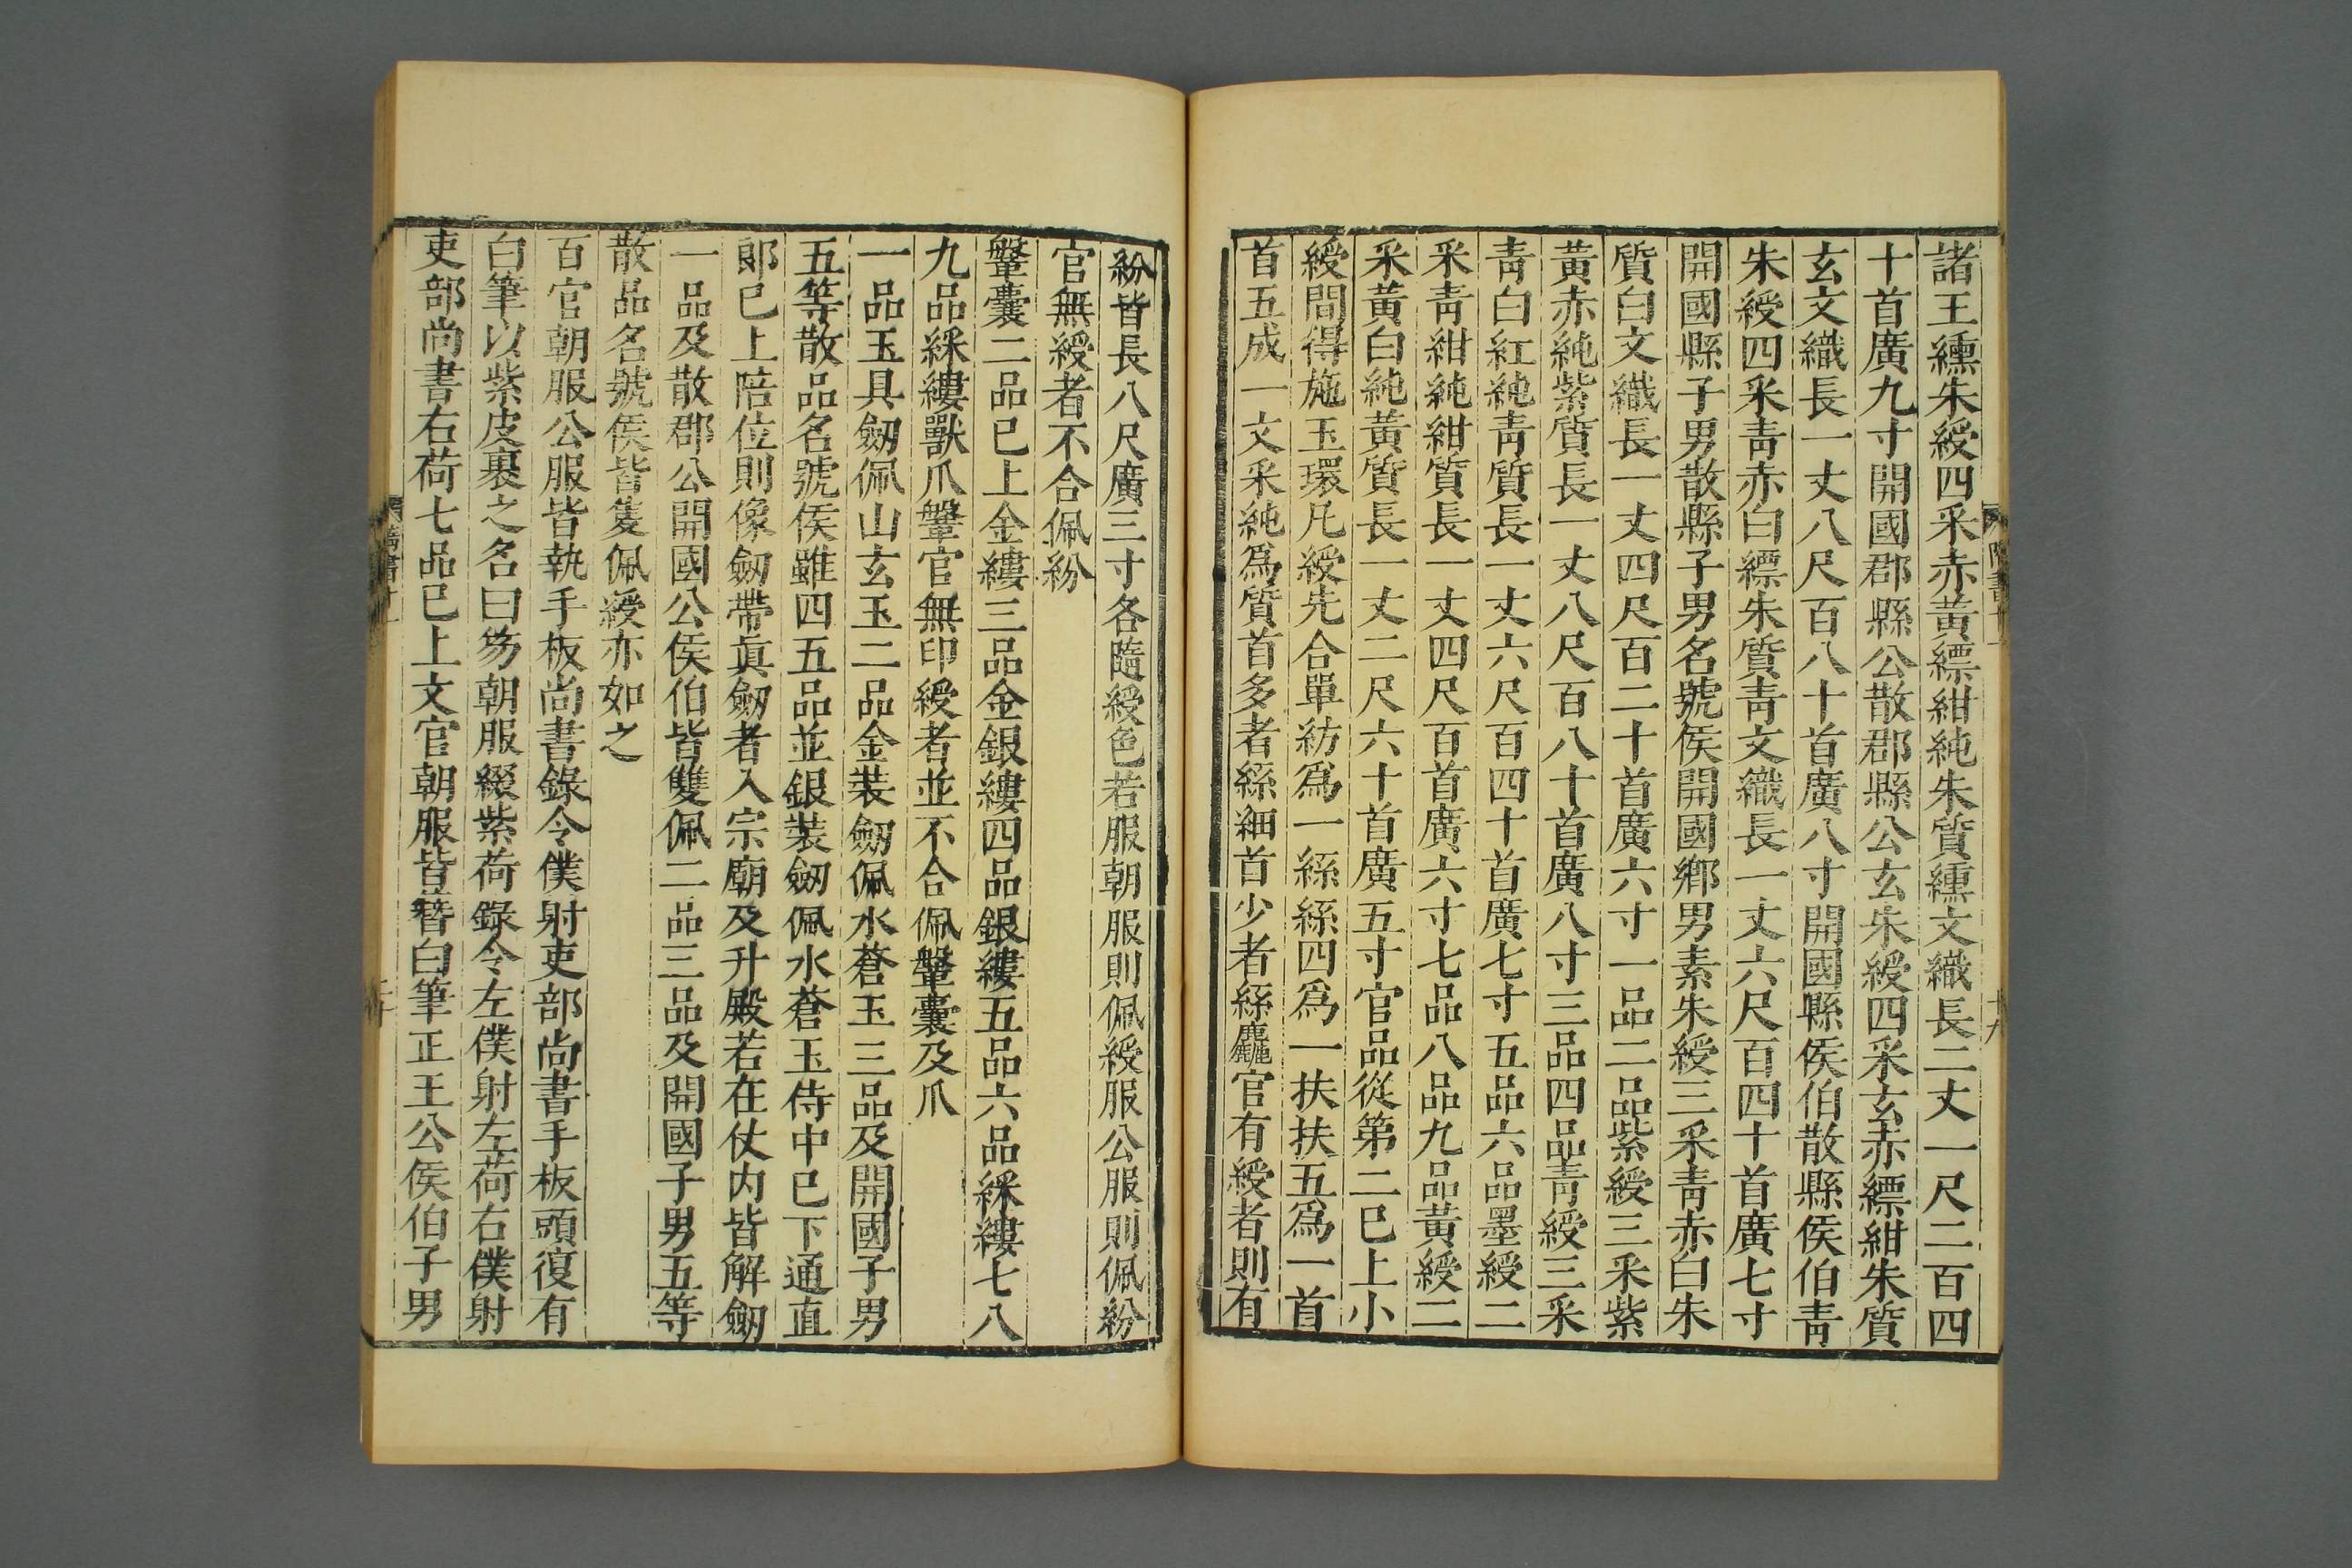 諸王纁朱綬四采赤黃縹紺純朱質纁文織長二丈一尺二百四
十首廣九寸開國郡縣公散郡縣公玄朱綬四采玄赤縹紺朱質
玄文織長一丈八尺百八十首廣八寸開國縣侯伯散縣侯伯青
朱綬四采青赤白縹朱質青文織長一丈六尺百四十首廣七寸
開國縣子男散縣子男名號侯開國鄉男素朱綬三采青赤白朱
質白文織長一丈四尺百二十首廣六寸一品二品紫綬三采紫
黃赤純紫質長一丈八尺百八十首廣八寸三品四品青綬三采
青白紅純青質長一丈六尺百四十首廣七寸五品六品墨綬二
采青紺純紺質長一丈四尺百首廣六寸七品八品九品黃綬二
采黃白純黃質長一丈二尺六十首廣五寸官品從第二已上小
綬間得施玉環凡綬先合單紡爲一絲絲四爲一扶扶五爲一首
首五成一文采純爲質首多者絲細首少者絲麤官有綬者則有
紛皆長八尺廣三寸各隨綬色若服朝服則佩綬服公服則佩紛
官無綬者不合佩紛
鞶囊二品已上金縷三品金銀縷四品銀縷五品六品綵縷七八
九品綵縷獸爪鞶官無印綬者並不合佩鞶囊及爪
一品玉具劒佩山玄玉二品金裝劒佩水蒼玉三品及開國子男
五等散品名號侯雖四五品並銀裝劒佩水蒼玉侍中已下通直
郎已上陪位則像劒帶眞劒者入宗廟及升殿若在仗內皆解劒
一品及散郡公開國公侯伯皆雙佩二品三品及開國子男五等
散品名號侯皆隻佩綬亦如之
百官朝服公服皆執手板尚書錄令僕射吏部尚書手板頭復有
白筆以紫皮裹之名曰笏朝服綴紫荷錄令左僕射左荷右僕射
吏部尚書右荷七品已上文官朝服皆簪白筆正王公侯伯子男